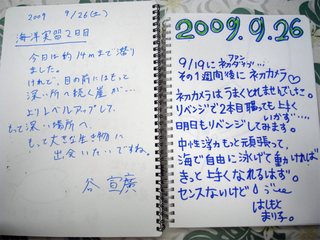 2009 9/26(土)
海洋実習2日目
今日は約14mまで潜り
ました。
けれど、目の前にはもっと
深い所へ続く崖が…
よりレベルアップして、
もって深い場所へ、
もって大きな生き物に
出会いたいですね。
谷
2009.9.26
9/19に初ファンダイブ
その1週間後に初カメラ♡
初カメラはうまくとれませんでした。
リベンジで2本目撮っても上手く
いかず…
明日もリベンジしてみます。
中性浮力もっと頑張って、
海で自由に泳げて動ければ
きっと上手くなれるはず。
センスないけど
はしもと
まり子。